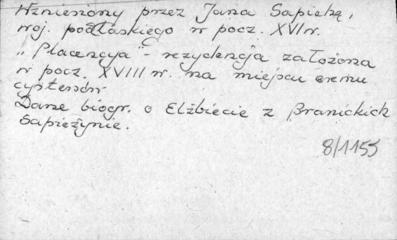 Wzniesiony przez Jana Sapiehę,
woj. podlaskiego w pocz. XVII w.
„Placencja" - rezydencja założona
w pocz. XVIII w. na miejscu eremu
cystersów
Dane biogr. o Elżbiecie z Branickich
Sapieżynie.
8/1155